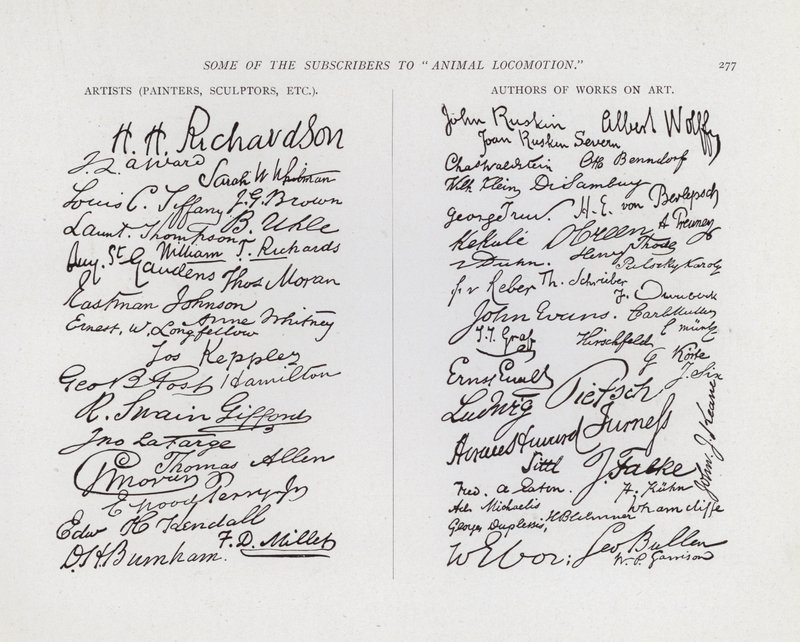 SOME OF THE SUBSCRIBERS TO "ANIMAL LOCOMOTION."
277
ARTISTS (PAINTERS, SCULPTORS, ETC.).
H. H. Richardson
J. Q. A. Ward
Sarah W Whitman
Louis C. Tiffany.
J. G. Brown
B. Uhle
Launt. Thompson
William T. Richards
Aug. St Gaudens
Thos Moran
Eastman Johnson
Anne Whitney
Ernest. W. Longfellow
Jos Keppler
Geo B Post
Hamilton
R. Swain Gifford
Jno LaFarge
Thomas Allen
P Moran
E Wood Perry Jr
Edw H Kendall
F. D. Millet
D. H. Burnham.
AUTHORS OF WORKS ON ART.
John Ruskin
Albert Wolff
Joan Ruskin Severn
Chas Waldstein
Otto Benndorf
Wilh. Klein
H. E. von Berlepsch
George Treu.
Kekulé
Henry Thode
v Duhn.
Pulszky Karoly
F. v Reber
Th. Schreiber
John Evans.
Hirschfeld
G Körte
J. Six
Ernst Ewald
Ludwig Pietsch
Horace Howard Furness
John J. Keane
Sittl
J. Falke
Fred. A Eaton.
A. Kühn
Ad. Michaelis
H Blümner
Georges Duplessis,
Geo Bullen
W. P. Garrison